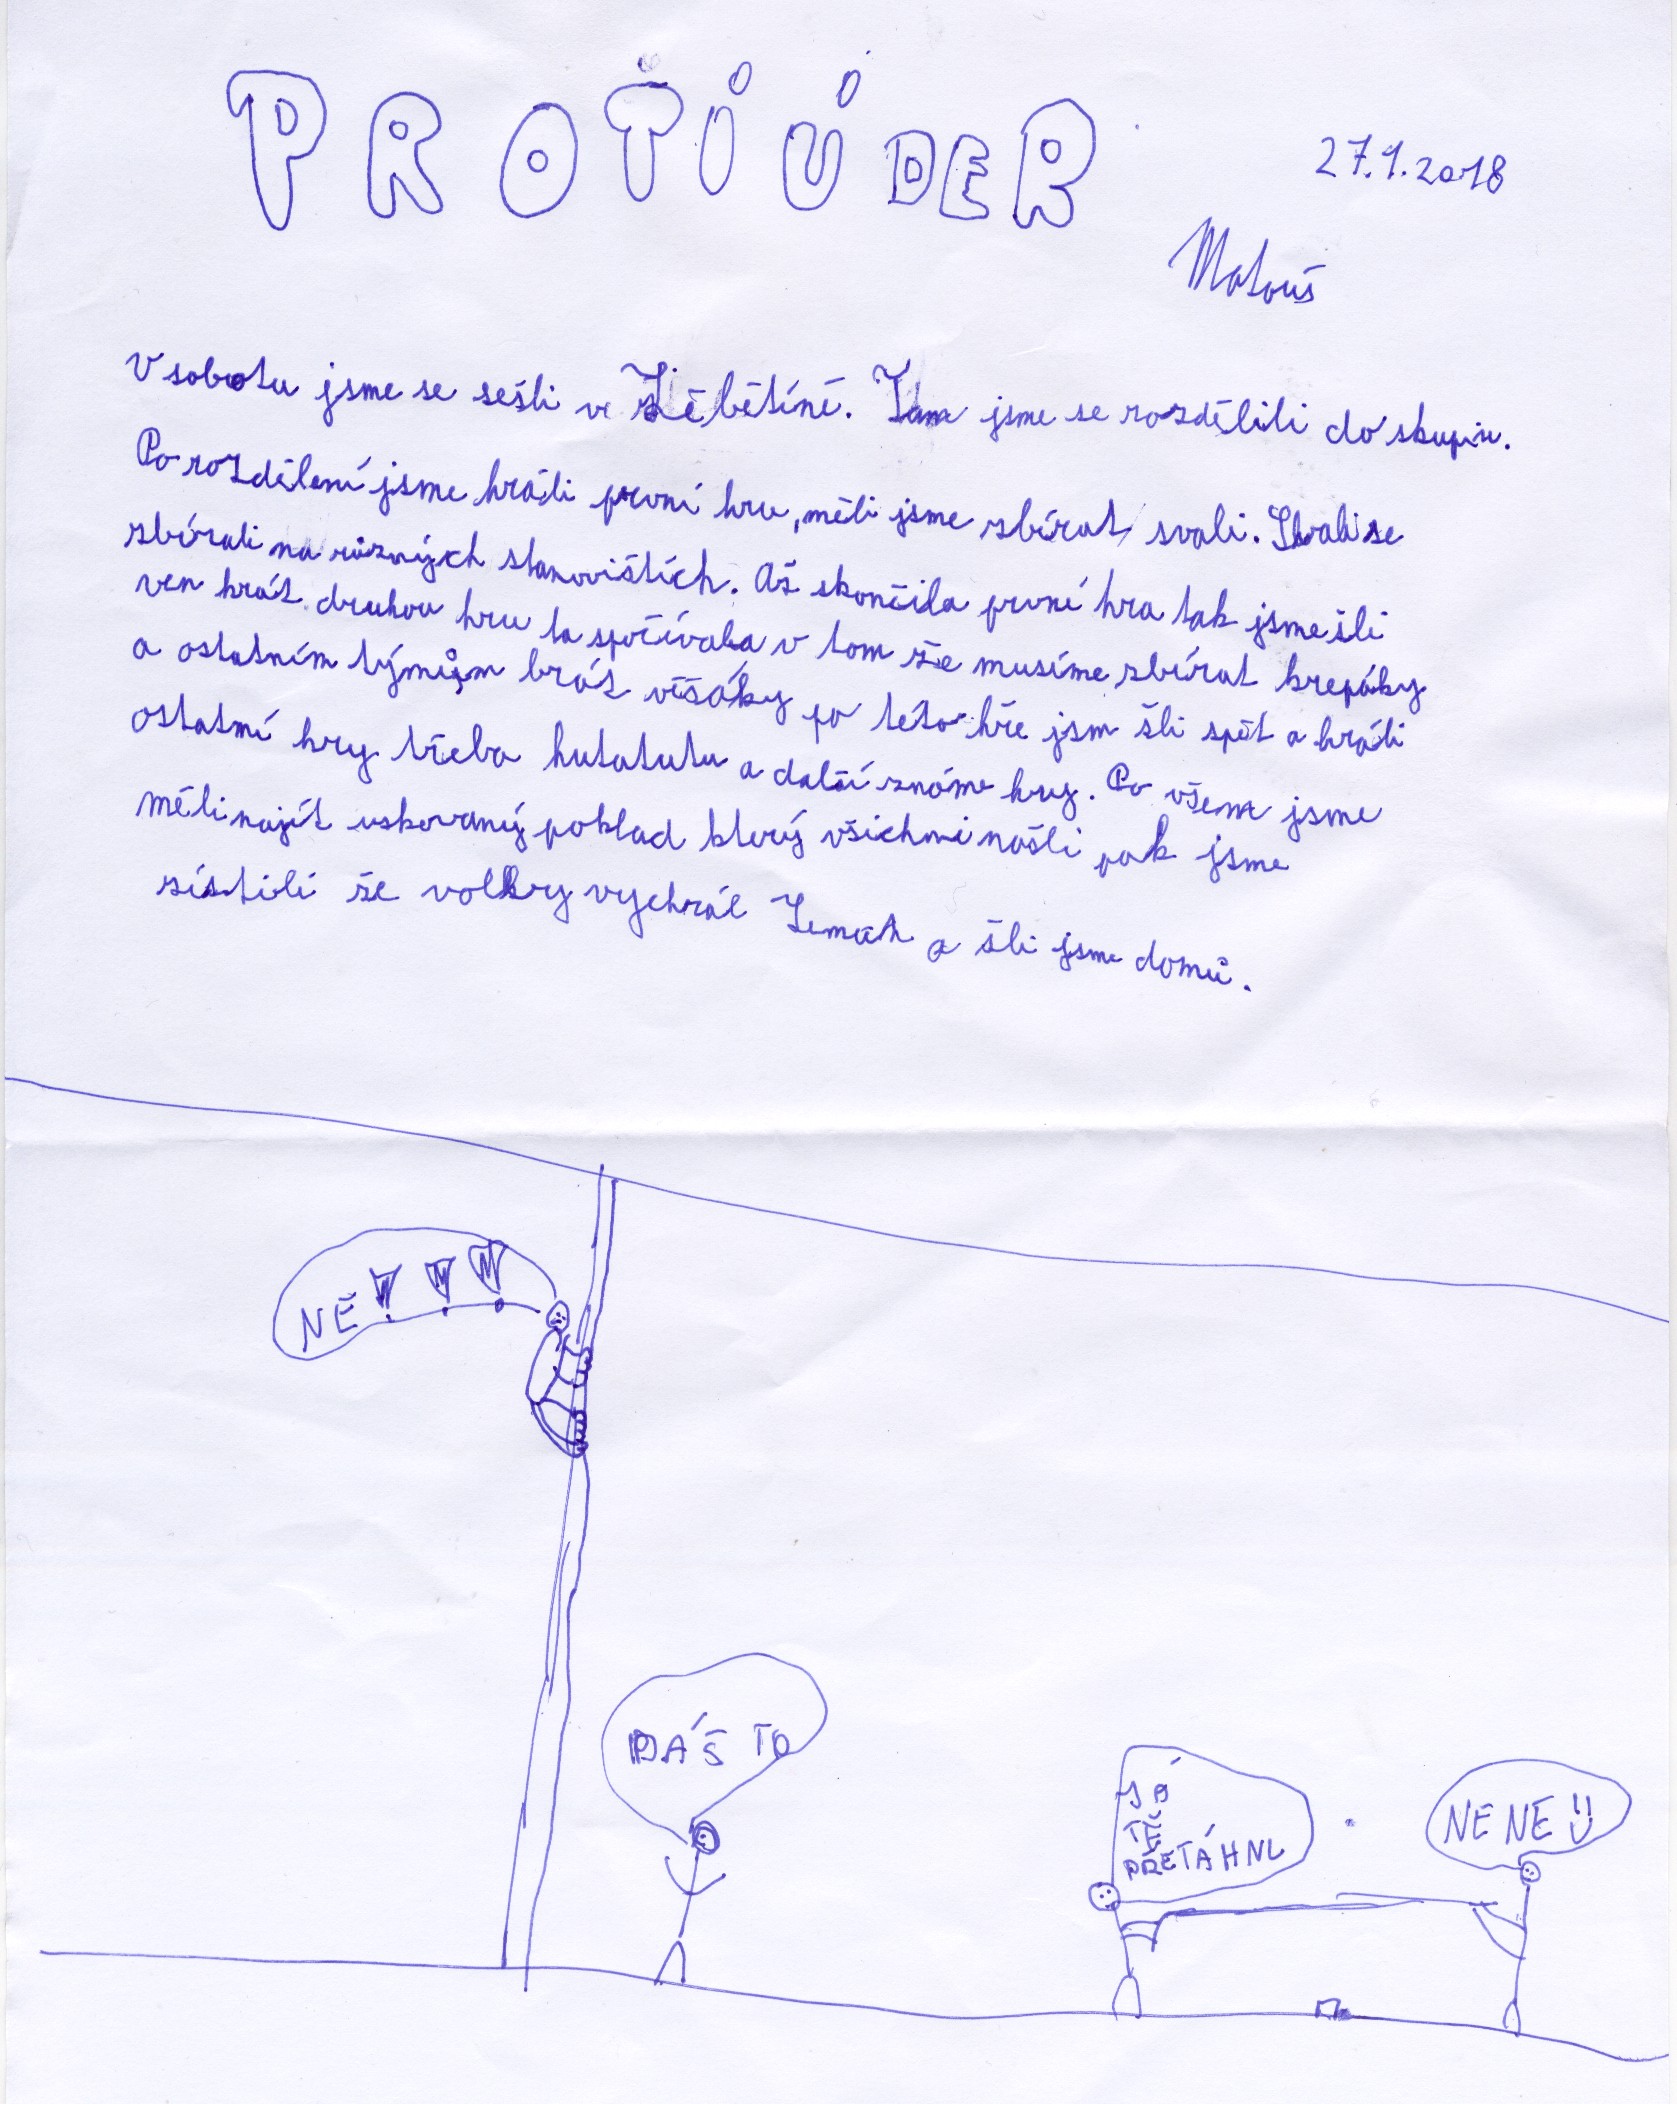 PROŤÍÚDER
27.1.2018
Matouš
V sobotu jsme se sešli v Žebětíně. Tam jsme se rozdělili do skupin.
Po rozdělení jsme hráli první hru, měli jsme sbírat svali. Svali se
sbírali na různých stanovištích. Až skončila první hra tak jsme šli
ven hrát druhou hru ta spočívala v tom že musíme sbírat krepáky
a ostatním týmům brát věšáky po této hře jsm šli spět a hráli
ostatní hry třeba hututututu a další známe hry. Po všem jsme
měli najít uskovaný poklad který všichni našli pak jsme
sístili že volbry vychrál Zeman a šli jsme domů.
NE!!!
DÁŠ TO
JÁ
TĚ
PŘETÁHNU
NE NE